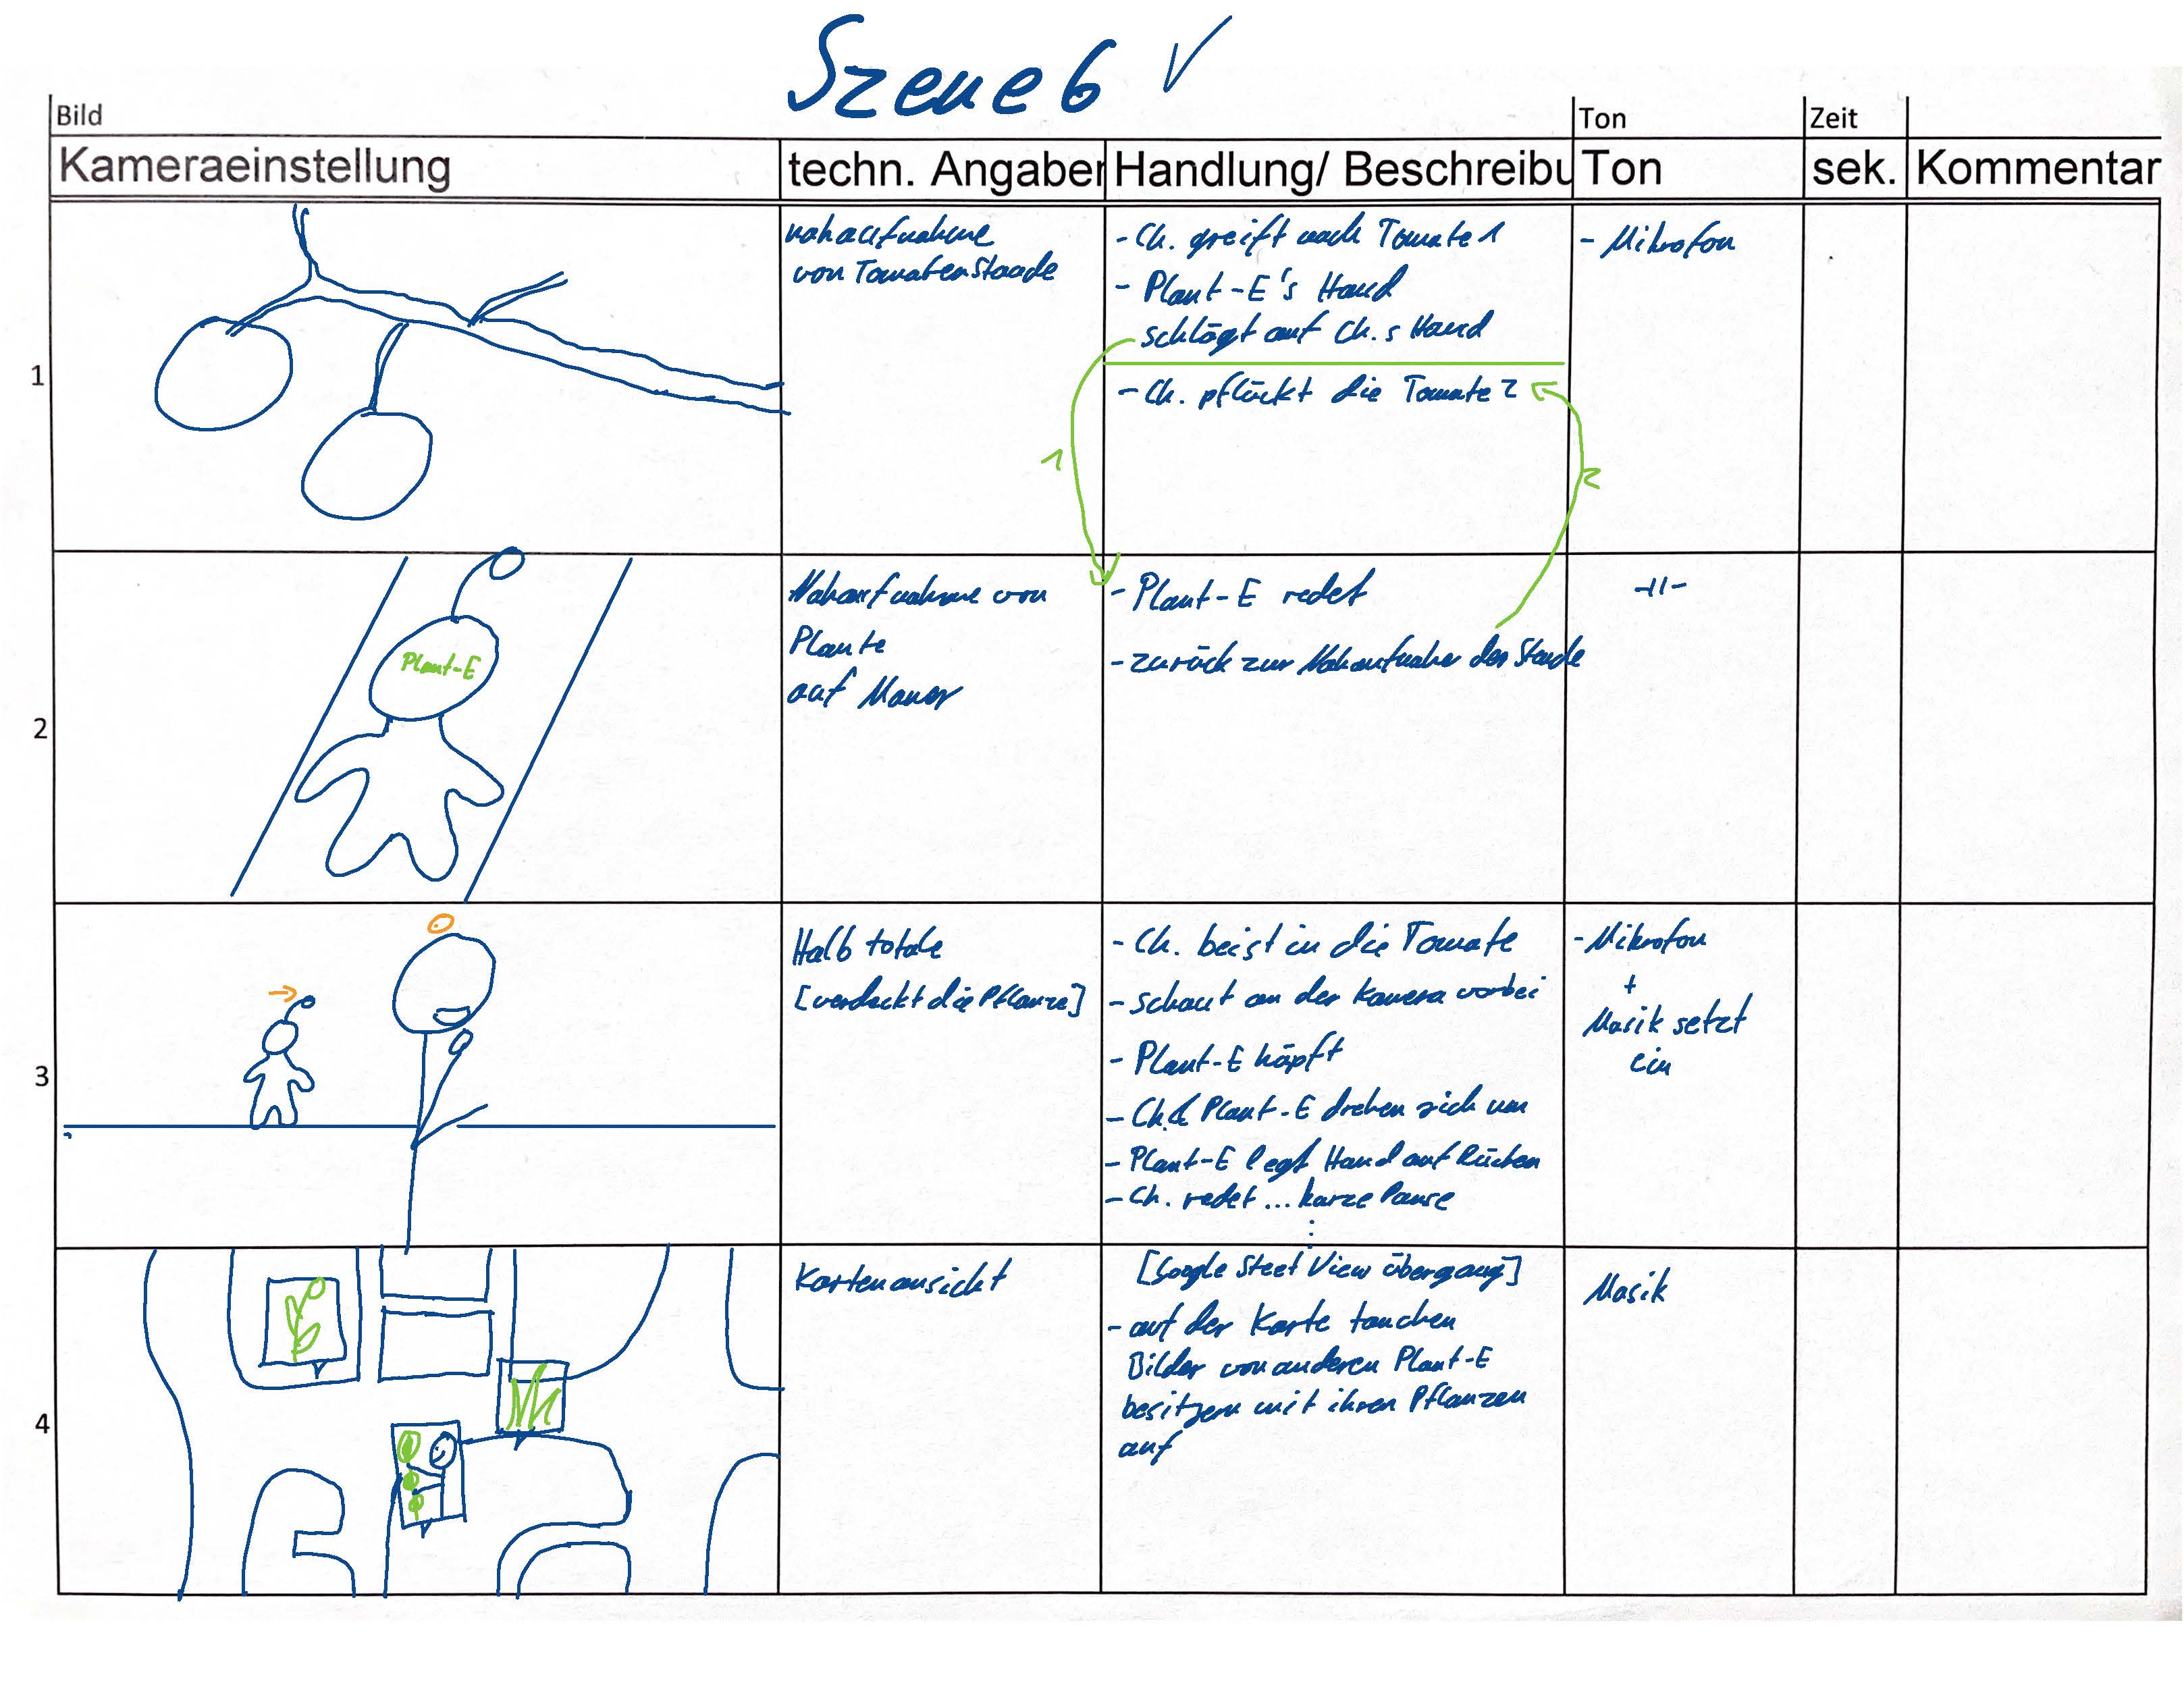 Szene 6 ✓
Bild
Ton
Zeit
Kameraeinstellung
techn. Angaben
Handlung/ Beschreibu
Ton
sek.
Kommentar
1
nahaufnahme
von Tomatenstaade
- Ch. greift nach Tomate 1
- Plant-E's Hand
schlägt auf Ch.s Hand
- Ch. pflückt die Tomate 2
- Mikrofon
1
2
2
Plant-E
Nahaufnahme von
Plante
auf Mauer
- Plant-E redet
- zurück zur Nahaufnahme der Staude
-11-
3
Halb totale
[verdeckt die Pflanze]
- Ch. beist in die Tomate
- schaut an der Kamera vorbei
- Plant-E hüpft
- Ch. & Plant-E drehen sich um
- Plant-E legt Hand auf Rücken
- Ch. redet ... kurze Pause
- Mikrofon
+
Musik setzt
ein
4
Kartenansicht
[Google Steet View übergang]
- auf der Karte tauchen
Bilder von anderen Plant-E
besitzern mit ihren Pflanzen
auf
Musik